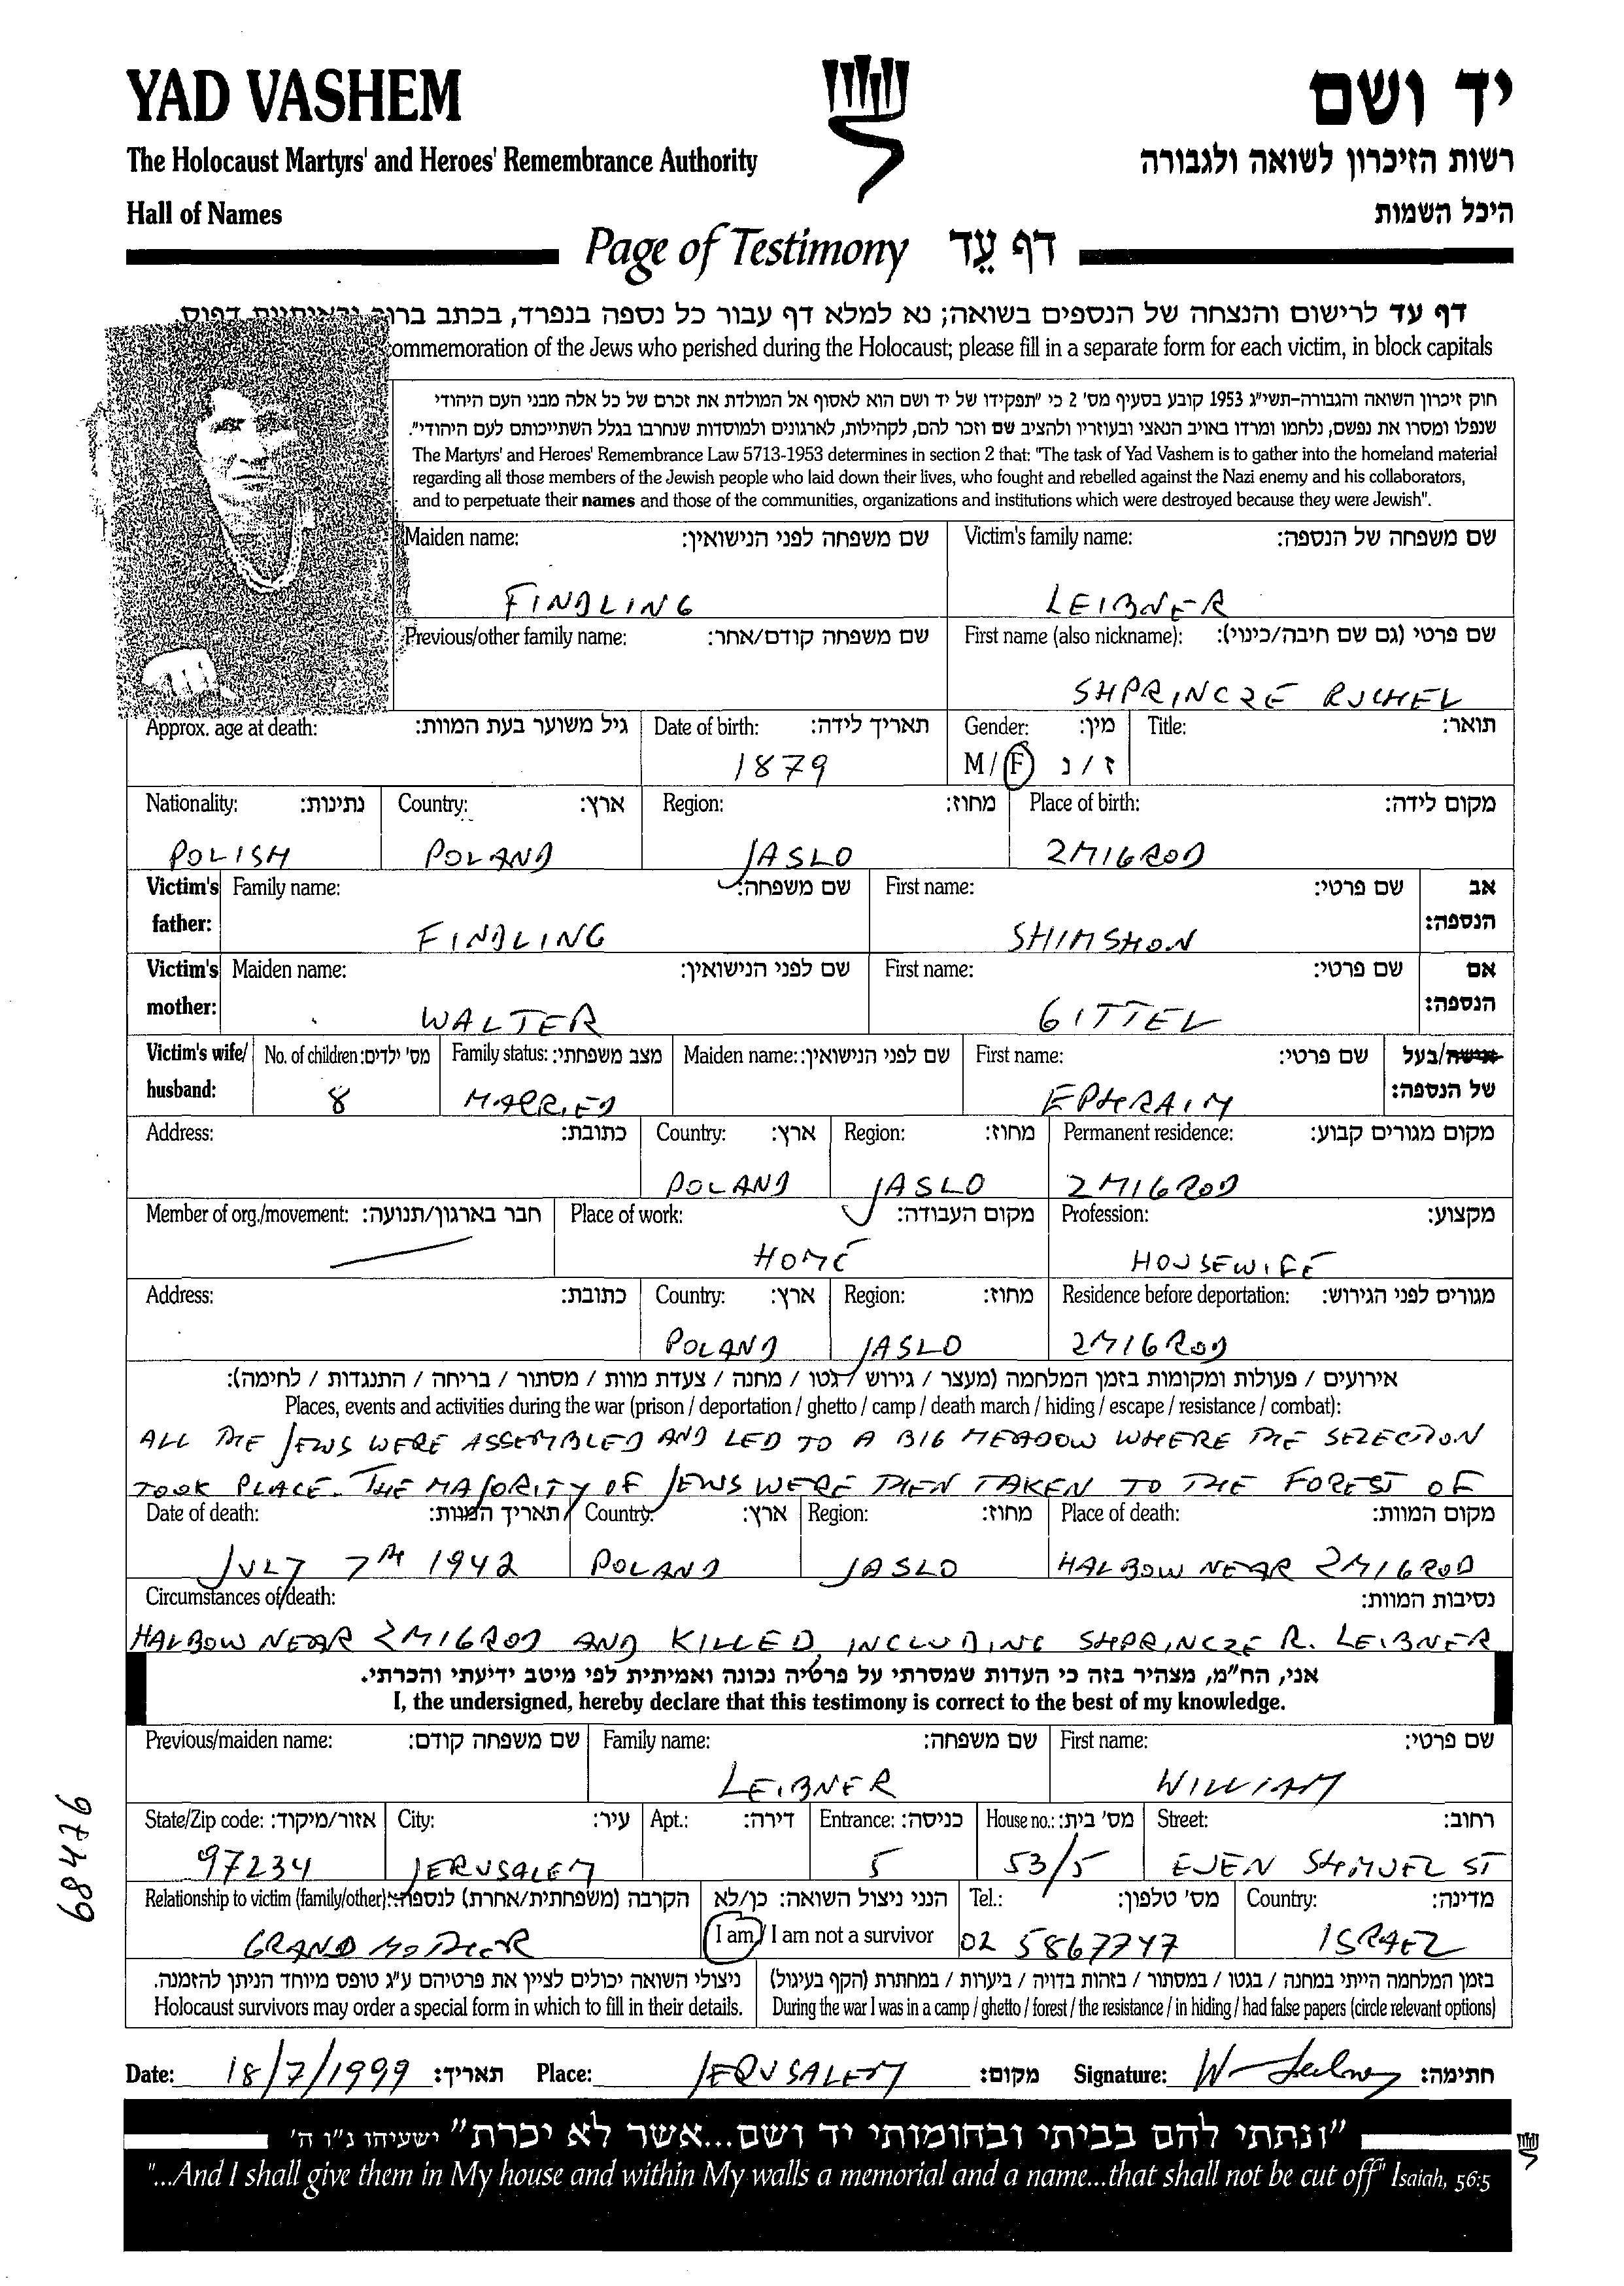 YAD VASHEM
יד ושם
The Holocaust Martyrs' and Heroes' Remembrance Authority
רשות הזיכרון לשואה ולגבורה
Hall of Names
היכל השמות
Page of Testimony דף עֵד
דף עד לרישום והנצחה של הנספים בשואה; נא למלא דף עבור כל נספה בנפרד, בכתב ברור ובאותיות דפוס.
commemoration of the Jews who perished during the Holocaust; please fill in a separate form for each victim, in block capitals
חוק זיכרון השואה והגבורה-תשי"ג 1953 קובע בסעיף מס' 2 כי "תפקידו של יד ושם הוא לאסוף אל המולדת את זכרם של כל אלה מבני העם היהודי
שנפלו ומסרו את נפשם, נלחמו ומרדו באויב הנאצי ובעוזריו ולהציב שם וזכר להם, לקהילות, לארגונים ולמוסדות שנחרבו בגלל השתייכותם לעם היהודי".
The Martyrs' and Heroes' Remembrance Law 5713-1953 determines in section 2 that: "The task of Yad Vashem is to gather into the homeland material
regarding all those members of the Jewish people who laid down their lives, who fought and rebelled against the Nazi enemy and his collaborators,
and to perpetuate their names and those of the communities, organizations and institutions which were destroyed because they were Jewish".
Maiden name: שם משפחה לפני הנישואין: Victim's family name: שם משפחה של הנספה:
FINDLING LEIBNER
Previous/other family name: שם משפחה קודם/אחר: First name (also nickname): שם פרטי (גם שם חיבה/כינוי):
SHPRINCZE RUCHEL
Approx. age at death: גיל משוער בעת המוות: Date of birth: תאריך לידה: Gender: מין: Title: תואר:
1879 M / F ז / נ
Nationality: נתינות: Country: ארץ: Region: מחוז: Place of birth: מקום לידה:
POLISH POLAND JASLO ZMIGROD
Victim's father: Family name: שם משפחה: First name: שם פרטי: אב הנספה:
FINDLING SHIMSHON
Victim's mother: Maiden name: שם לפני הנישואין: First name: שם פרטי: אם הנספה:
WALTER GITTEL
Victim's wife/ husband: No. of children: מס' ילדים: Family status: מצב משפחתי: Maiden name: שם לפני הנישואין: First name: שם פרטי: אישה/בעל של הנספה:
8 MARRIED EPHRAIM
Address: כתובת: Country: ארץ: Region: מחוז: Permanent residence: מקום מגורים קבוע:
POLAND JASLO ZMIGROD
Member of org./movement: חבר בארגון/תנועה: Place of work: מקום העבודה: Profession: מקצוע:
HOME HOUSEWIFE
Address: כתובת: Country: ארץ: Region: מחוז: Residence before deportation: מגורים לפני הגירוש:
POLAND JASLO ZMIGROD
אירועים / פעולות ומקומות בזמן המלחמה (מעצר / גירוש / גטו / מחנה / צעדת מוות / מסתור / בריחה / התנגדות / לחימה):
Places, events and activities during the war (prison / deportation / ghetto / camp / death march / hiding / escape / resistance / combat):
ALL THE JEWS WERE ASSEMBLED AND LED TO A BIG MEADOW WHERE THE SELECTION
TOOK PLACE. THE MAJORITY OF JEWS WERE THEN TAKEN TO THE FOREST OF
Date of death: תאריך המוות: Country: ארץ: Region: מחוז: Place of death: מקום המוות:
JULY 7TH 1942 POLAND JASLO HALBOW NEAR ZMIGROD
Circumstances of death: נסיבות המוות:
HALBOW NEAR ZMIGROD AND KILLED, INCLUDING SHPRINCZE R. LEIBNER
אני, הח"מ, מצהיר בזה כי העדות שמסרתי על פרטיה נכונה ואמיתית לפי מיטב ידיעתי והכרתי.
I, the undersigned, hereby declare that this testimony is correct to the best of my knowledge.
Previous/maiden name: שם משפחה קודם: Family name: שם משפחה: First name: שם פרטי:
LEIBNER WILLIAM
State/Zip code: אזור/מיקוד: City: עיר: Apt.: דירה: Entrance: כניסה: House no.: מס' בית: Street: רחוב:
97234 JERUSALEM 5 53/5 EVEN SHMUEL ST
Relationship to victim (family/other): הקרבה (משפחתית/אחרת) לנספה: הנני ניצול השואה: כן/לא Tel.: מס' טלפון: Country: מדינה:
GRAND MOTHER I am / I am not a survivor 02 5867747 ISRAEL
ניצולי השואה יכולים לציין את פרטיהם ע"ג טופס מיוחד הניתן להזמנה. בזמן המלחמה הייתי במחנה / בגטו / במסתור / בזהות בדויה / ביערות / במחתרת (הקף בעיגול)
Holocaust survivors may order a special form in which to fill in their details. During the war I was in a camp / ghetto / forest / the resistance / in hiding / had false papers (circle relevant options)
Date: 18/7/1999 תאריך: Place: JERUSALEM מקום: Signature: W Leibner חתימה:
"ונתתי להם בביתי ובחומותי יד ושם...אשר לא יכרת" ישעיהו נ"ו ה'
"...And I shall give them in My house and within My walls a memorial and a name...that shall not be cut off" Isaiah, 56:5
68476